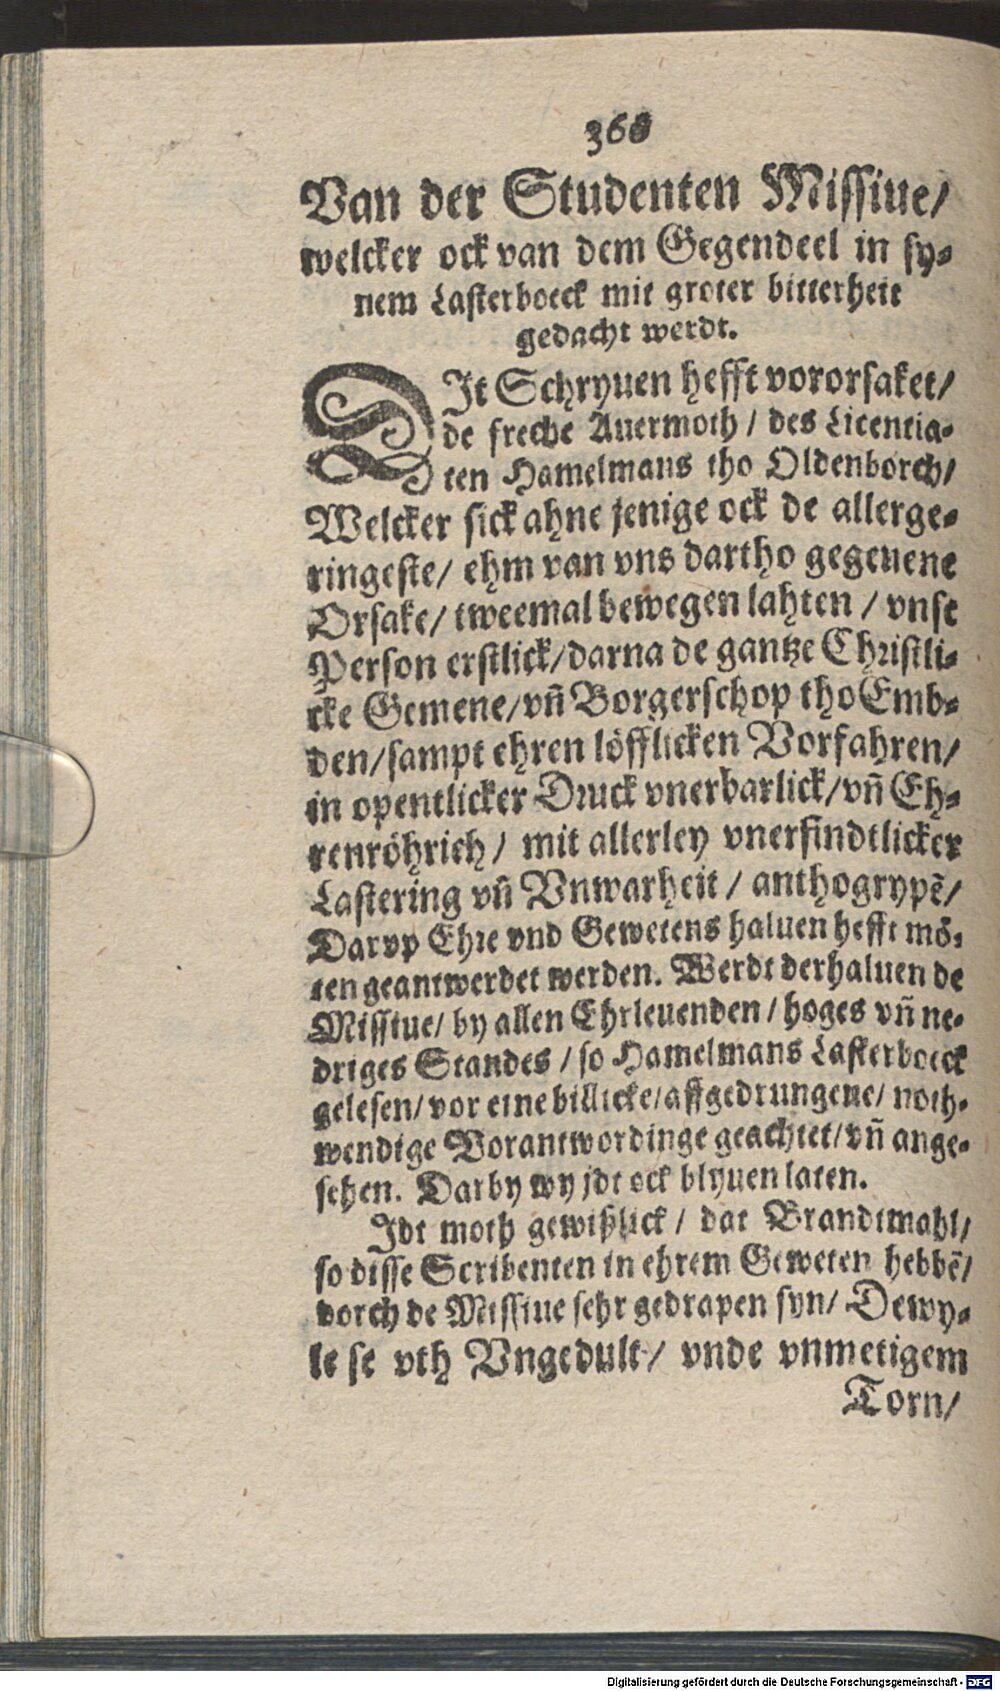 368
Van der Studenten Missiue/
welcker ock van dem Gegendeel in sy⸗
nem Lasterboeck mit groter bitterheit
gedacht werdt.
DIt Schryuen hefft vororsaket/
de freche Auermoth / des Licentia⸗
ten Hamelmans tho Oldenborch/
Welcker sick ahne jenige ock de allerge⸗
ringeste/ ehm van vns dartho gegeuene
Orsake/ tweemal bewegen lahten / vnse
Person erstlick/darna de gantze Christli⸗
cke Gemene/vn̄ Borgerschop tho Emb⸗
den/sampt ehren löfflicken Vorfahren/
in opentlicker Druck vnerbarlick/vn̄ Eh⸗
renröhrich/ mit allerley vnerfindtlicker
Lastering vn̄ Vnwarheit / anthogrypē/
Darvp Ehre vnd Gewetens haluen hefft mö⸗
ten geantwerdet werden. Werdt derhaluen de
Missiue/ by allen Ehrleuenden / hoges vn̄ ne⸗
driges Standes / so Hamelmans Lasterboeck
gelesen/ vor eine billicke/affgedrungene/ noth⸗
wendige Vorantwordinge geachtet/vn̄ ange⸗
sehen. Darby wy jdt ock blyuen laten.
Idt moth gewißlick / dat Brandtmahl/
so disse Scribenten in ehrem Geweten hebbē/
dorch de Missiue sehr gedrapen syn/ Dewy⸗
le se vth Vngedult/ vnde vnmetigem
Torn/
Digitalisierung gefördert durch die Deutsche Forschungsgemeinschaft - DFG